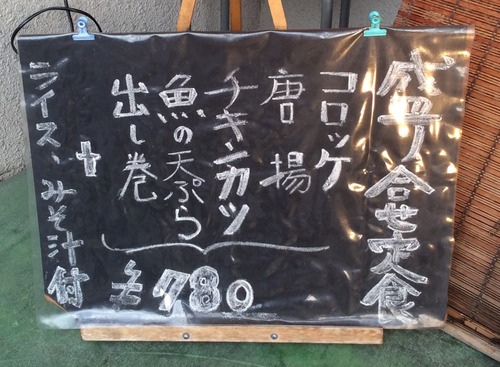 盛り合せ定食
コロッケ
唐揚
チキンカツ
魚の天ぷら
出し巻
¥780
+
ライス、みそ汁付